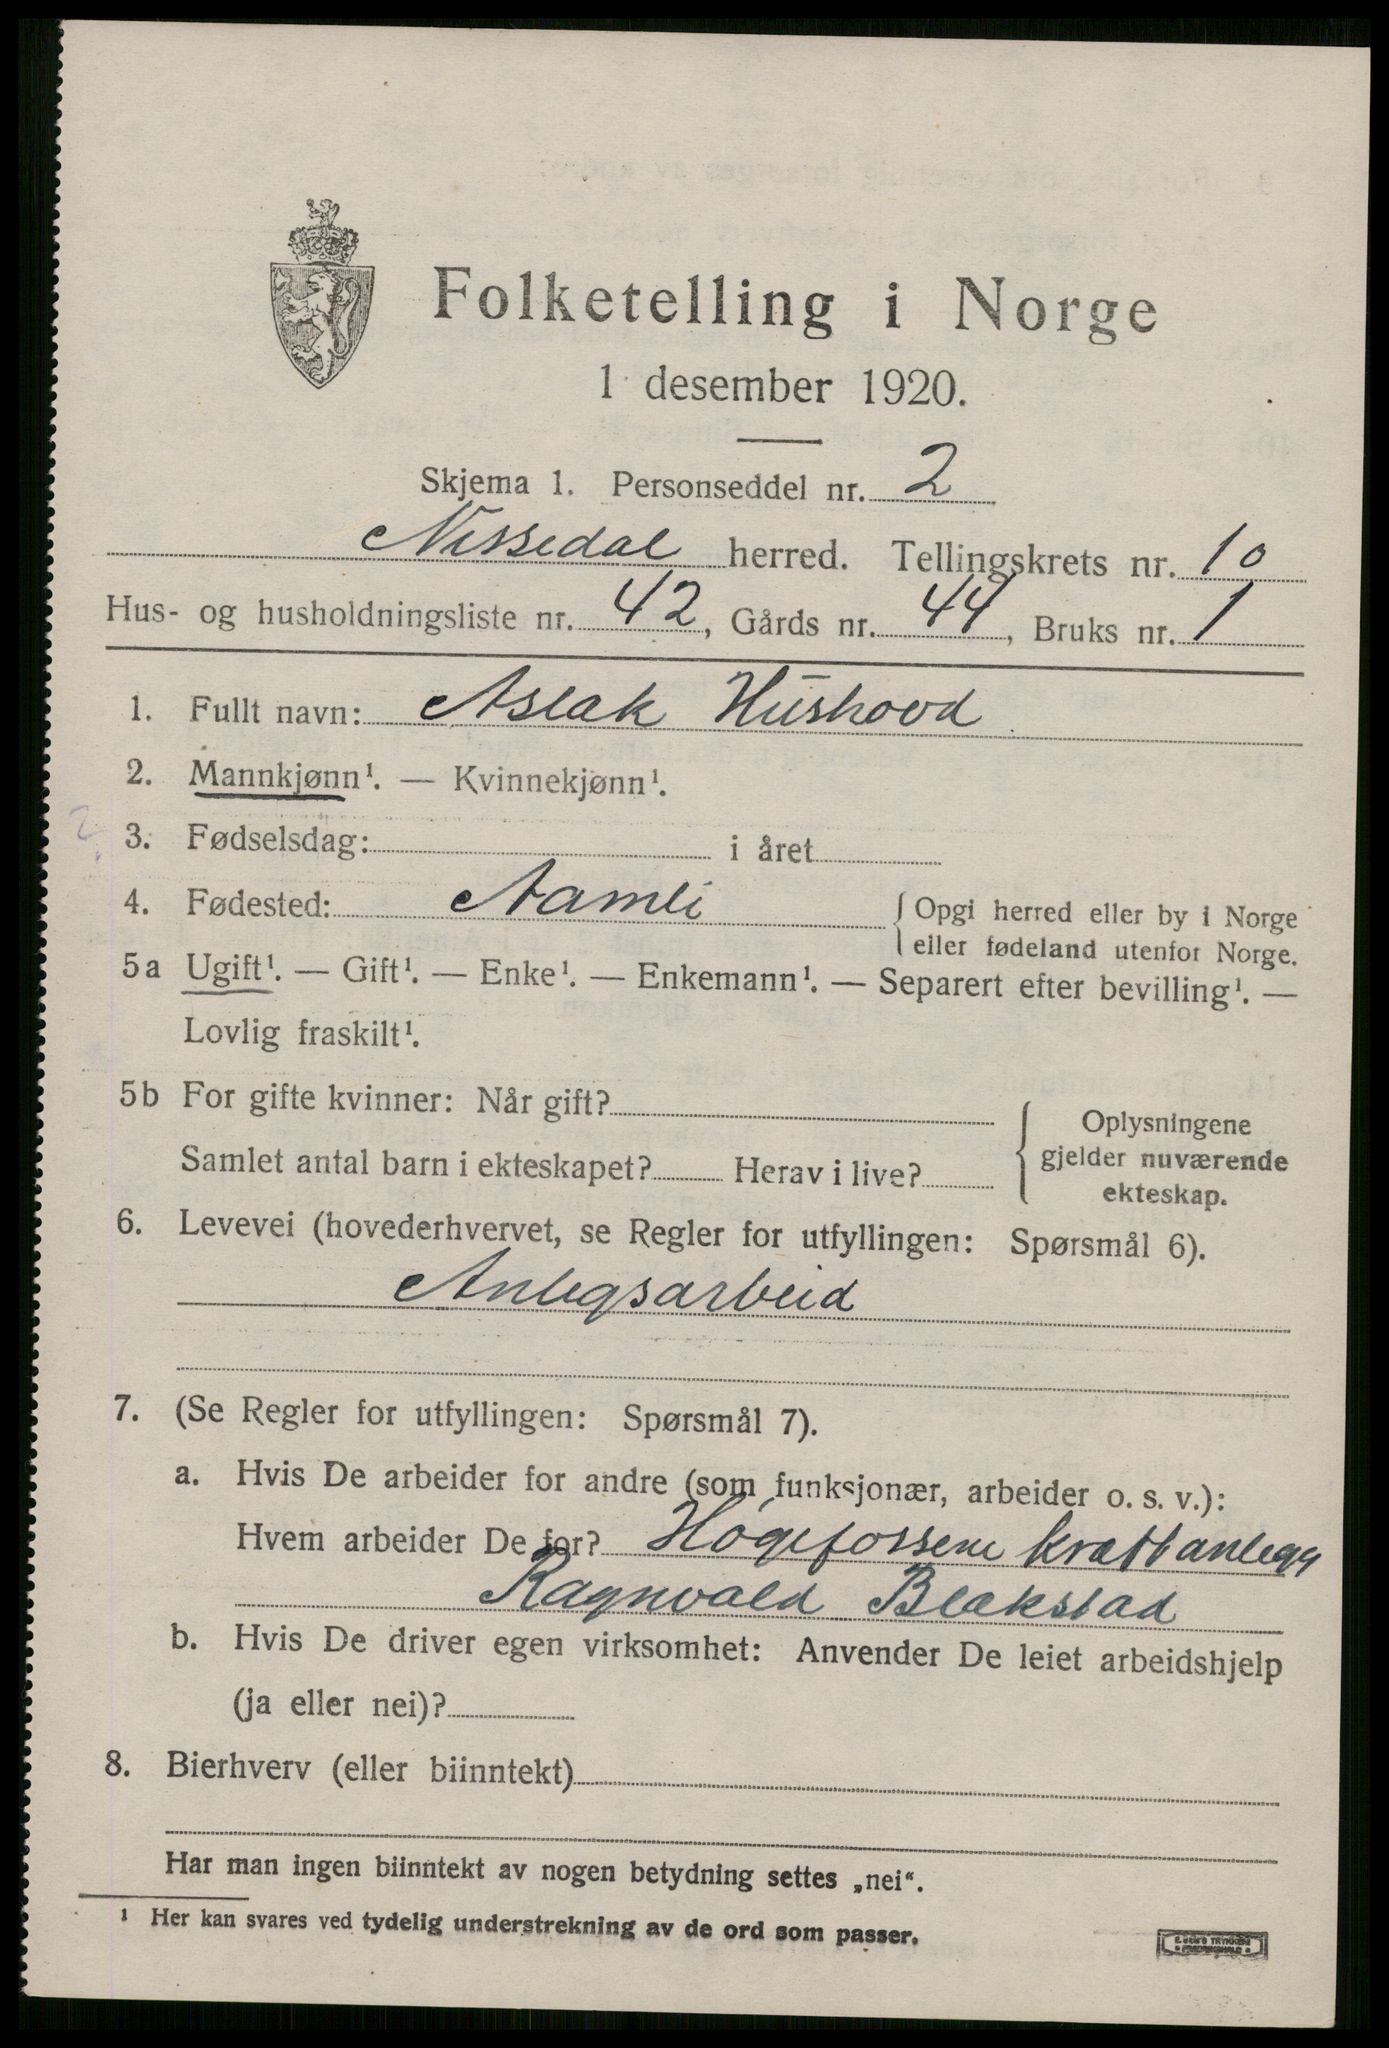 Folketelling i Norge
1 desember 1920.
Skjema 1. Personseddel nr. 2
Nissedal herred. Tellingskrets nr. 10
Hus- og husholdningsliste nr. 42, Gårds nr. 44, Bruks nr. 1
1. Fullt navn: Aslak Hŭshovd
2. Mannkjønn¹. — Kvinnekjønn¹.
3. Fødselsdag: i året
4. Fødested: Aamli { Opgi herred eller by i Norge
eller fødeland utenfor Norge.
5a Ugift¹. — Gift¹. — Enke¹. — Enkemann¹. — Separert efter bevilling¹. —
Lovlig fraskilt¹.
5b For gifte kvinner: Når gift?
Samlet antal barn i ekteskapet? Herav i live?
{ Oplysningene
gjelder nuværende
ekteskap.
6. Levevei (hovederhvervet, se Regler for utfyllingen: Spørsmål 6).
Anlegsarbeid
7. (Se Regler for utfyllingen: Spørsmål 7).
a. Hvis De arbeider for andre (som funksjonær, arbeider o. s. v.):
Hvem arbeider De for? Høgefossene kraftanlegg
Ragnvald Blakstad
b. Hvis De driver egen virksomhet: Anvender De leiet arbeidshjelp
(ja eller nei)?
8. Bierhverv (eller biinntekt)
Har man ingen biinntekt av nogen betydning settes „nei“.
¹ Her kan svares ved tydelig understrekning av de ord som passer.